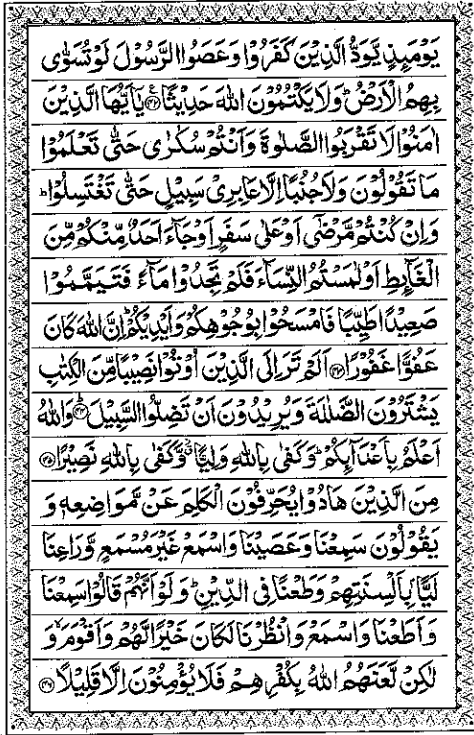 يَوْمَىِٕذٍ يَّوَدُّ الَّذِيْنَ كَفَرُوْا وَعَصَوُا الرَّسُوْلَ لَوْ تُسَوّٰى
بِهِمُ الْاَرْضُ ؕ وَلَا يَكْتُمُوْنَ اللّٰهَ حَدِيْثًا ﴿۴۲﴾ يٰۤاَيُّهَا الَّذِيْنَ
اٰمَنُوْا لَا تَقْرَبُوا الصَّلٰوةَ وَاَنْتُمْ سُكٰرٰى حَتّٰى تَعْلَمُوْا
مَا تَقُوْلُوْنَ وَلَا جُنُبًا اِلَّا عَابِرِيْ سَبِيْلٍ حَتّٰى تَغْتَسِلُوْا ؕ
وَاِنْ كُنْتُمْ مَّرْضٰۤى اَوْ عَلٰى سَفَرٍ اَوْ جَآءَ اَحَدٌ مِّنْكُمْ مِّنَ
الْغَآىِٕطِ اَوْ لٰمَسْتُمُ النِّسَآءَ فَلَمْ تَجِدُوْا مَآءً فَتَيَمَّمُوْا
صَعِيْدًا طَيِّبًا فَامْسَحُوْا بِوُجُوْهِكُمْ وَاَيْدِيْكُمْ ؕ اِنَّ اللّٰهَ كَانَ
عَفُوًّا غَفُوْرًا ﴿۴۳﴾ اَلَمْ تَرَ اِلَى الَّذِيْنَ اُوْتُوْا نَصِيْبًا مِّنَ الْكِتٰبِ
يَشْتَرُوْنَ الضَّلٰلَةَ وَيُرِيْدُوْنَ اَنْ تَضِلُّوا السَّبِيْلَ ﴿۴۴﴾ وَاللّٰهُ
اَعْلَمُ بِاَعْدَآىِٕكُمْ ؕ وَكَفٰى بِاللّٰهِ وَلِيًّا ۙ٘ وَّكَفٰى بِاللّٰهِ نَصِيْرًا ﴿۴۵﴾
مِنَ الَّذِيْنَ هَادُوْا يُحَرِّفُوْنَ الْكَلِمَ عَنْ مَّوَاضِعِهٖ وَ
يَقُوْلُوْنَ سَمِعْنَا وَعَصَيْنَا وَاسْمَعْ غَيْرَ مُسْمَعٍ وَّرَاعِنَا
لَيًّۢا بِاَلْسِنَتِهِمْ وَطَعْنًا فِي الدِّيْنِ ؕ وَلَوْ اَنَّهُمْ قَالُوْا سَمِعْنَا
وَاَطَعْنَا وَاسْمَعْ وَانْظُرْنَا لَكَانَ خَيْرًا لَّهُمْ وَاَقْوَمَ ۙ وَ
لٰكِنْ لَّعَنَهُمُ اللّٰهُ بِكُفْرِهِمْ فَلَا يُؤْمِنُوْنَ اِلَّا قَلِيْلًا ﴿۴۶﴾